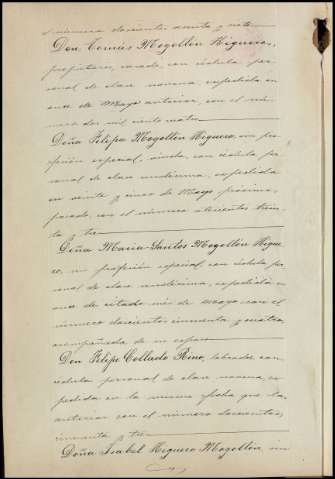 el número doscientos
Don Tomás Mogollón Higuero,
propietario, casado, con cédula per-
sonal de clase novena, expedida en
once de Mayo anterior, con el nú-
mero dos mil ciento
Doña Felipa Mogollón Higuero, sin pro-
fesión especial, con cédula per-
sonal de clase undécima, expedida
en veinte y cinco de Mayo próximo
pasado, con el número trein-
ta y tres
Doña María-Santos Mogollón Higue-
ro, sin profesión especial, con cédula per-
sonal de clase undécima, expedida en
once de citado mes de Mayo con el
número doscientos cincuenta y cuatro,
acompañada de su esposo
Don Felipe Collado Rino, labrador con
cédula personal de clase novena, ex-
pedida en la misma fecha que la
anterior con el número doscientos
cincuenta y tres
Doña Isabel Higuero Mogollón, sin